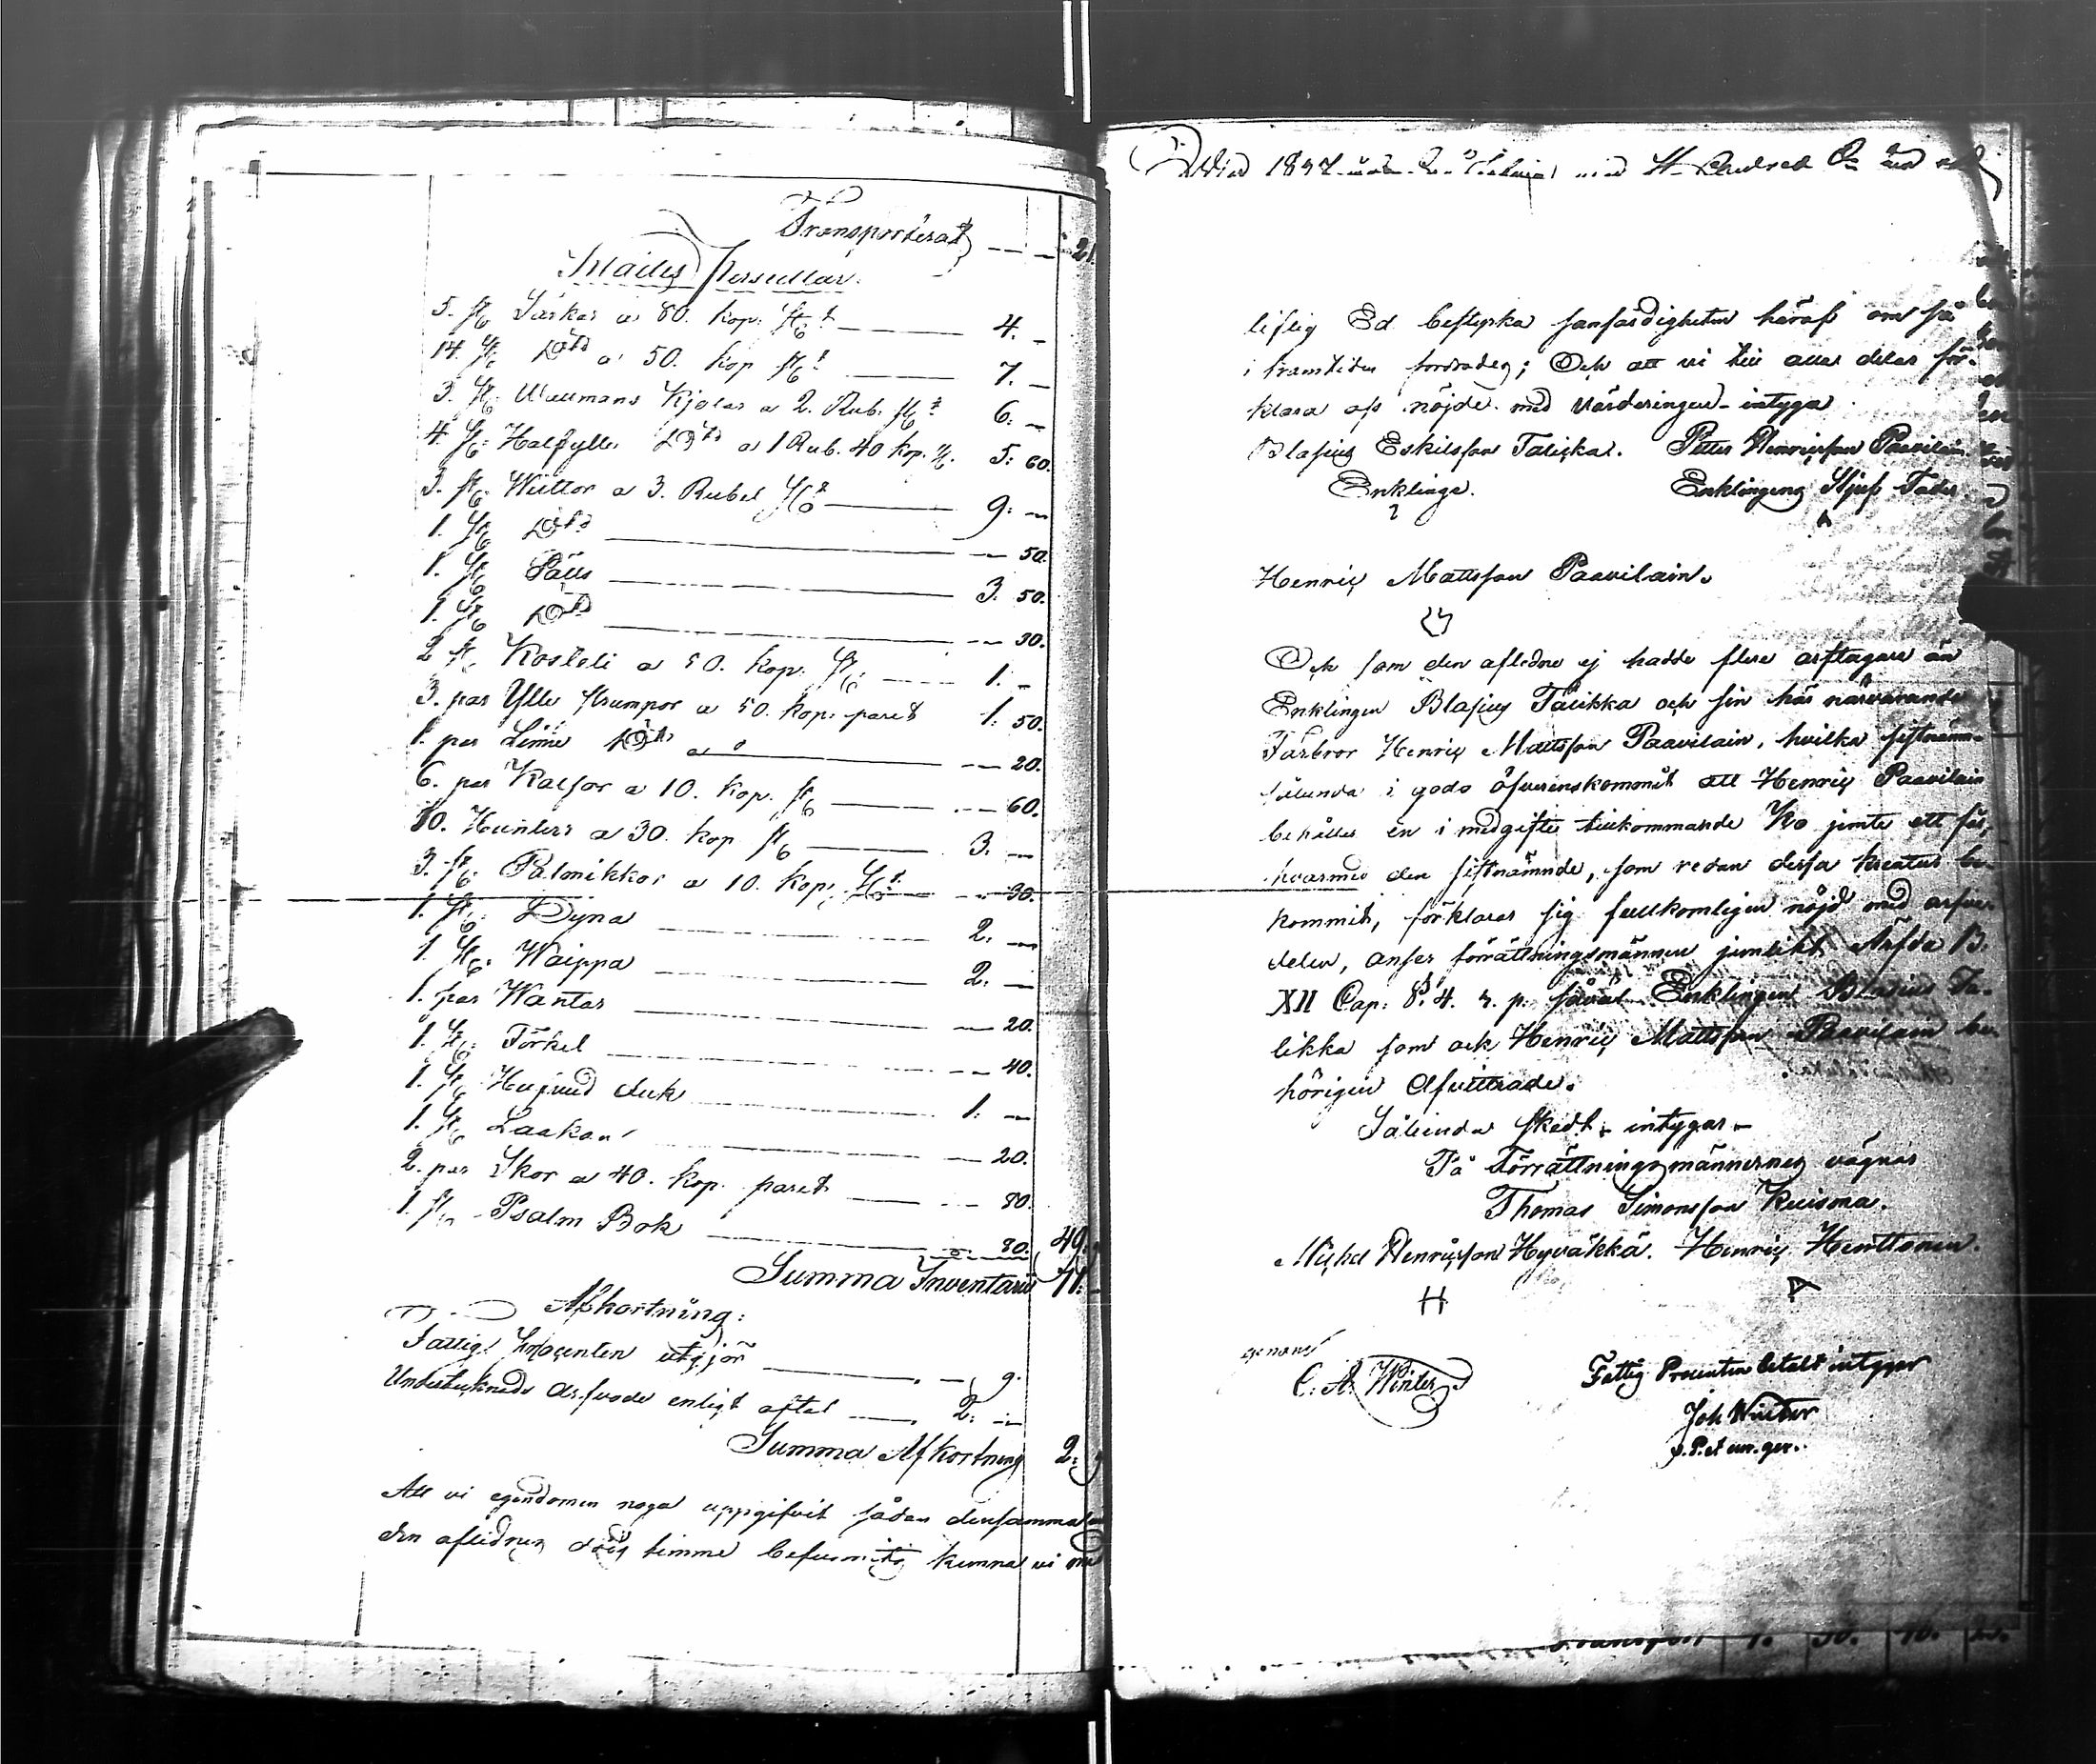 Transporterat — — 21.
Klädes Persedlar.
5. st. Särkar a 80. kop. st. — 4. —
14. st. Dito a 50. kop st. — 7. —
3. st. Wallmans Kjolar a 2. Rub. st. 6. —
4. st. Halfylle Dito a 1 Rub. 40 kop. st. 5: 60.
3. st. Wiittor a 3. Rubel st. — 9: —
1. st. Dito — — 50.
1. st. Päls — 3. 50.
1. st. Dito — — 30.
2 st. Kosteli a 50. kop. st. — 1. —
3. par Ylle strumpor a 50. kop. paret 1. 50.
1. par Linne Dito a — — 20.
6. par Kalsor a 10. kop. st. — — 60.
10. Huntlars a 30. kop st. — 3. —
3. st. Palmikkor a 10. kop. st. — — 30.
1. st. Dyna — 2. —
1. st. Waippa — 2. —
1. par Wantar — — 20.
1. st. Förkel — — 40.
1. st. Hufvud duk — 1: —
1. st. Laakan — — 20.
2. par Skor a 40. kop. paret — — 80.
1. st. Psalm Bok — — 80. 49.
Summa Inventarii 71.
Afkortning:
Fattig Procenten utgjör — —, 9.
Undertecknads arfvode enligt aftal — 2: —
Summa Afkortning 2: 9
Att vi egendomen noga uppgifvit sådan densamma
den aflidnes döds timme befunnits kunna vi med
1837 med
liflig Ed bestyrka sanfärdigheten häraf om så
i framtiden fordrades; Och att vi till allas delar för-
klara oss nöjde med värderingen intyga
Blasius Eskilsson Talikka. Petter Henricsson Paavilain
Enkling. Enklingens Stjuf Fader.
Henric Mattsson Paavilain.
Och som den aflidne ej hadde flere arftagare än
Enklingen Blasius Talikka och sin här närvarande
Farbror Henric Mattsson Paavilain, hvilka sistnämn-
sålunda i godo öfverenskommit att Henric Paavilain
behåller en i medgifte tillkommande Ko jemte ett får,
hvarmed den sistnämnde, som redan dessa kreatur be-
kommit, förklarar sig fullkomligen nöjd med arfve-
delen, anser förrättningsmännen jemlikt Ärfda B.
XII Cap: 4. r. p. Enklingen Blasius Ta-
likka som ock Henric Mattsson Paavilain be-
hörigen Afvittrade.
Sålunda skedt, intygar
På Förrättningsmännernes vägnar
Thomas Simonsson Kuisma.
Michel Henricsson Hyväkkä. Henric Henttonen
H A
genom
C. A. Winter Fattig Procenten betalt intygar
Joh Winter
v. P. et
Transport 1. 50. 16. 25.